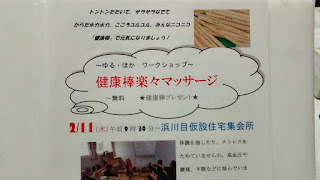 トントンたたいて、サラサラなでて
からだポカポカ、こころユルユル、みんなニコニコ
「健康棒」で元気になりましょう！
～ゆる・ほか　ワークショップ～
健康棒楽々マッサージ
～無料　★健康棒プレゼント★
2/11(木)午前9時30分～浜川目仮設住宅集会所
体調を崩したり、ストレスを
ためていませんか。高血圧や
腰痛、不眠などに悩んでいま